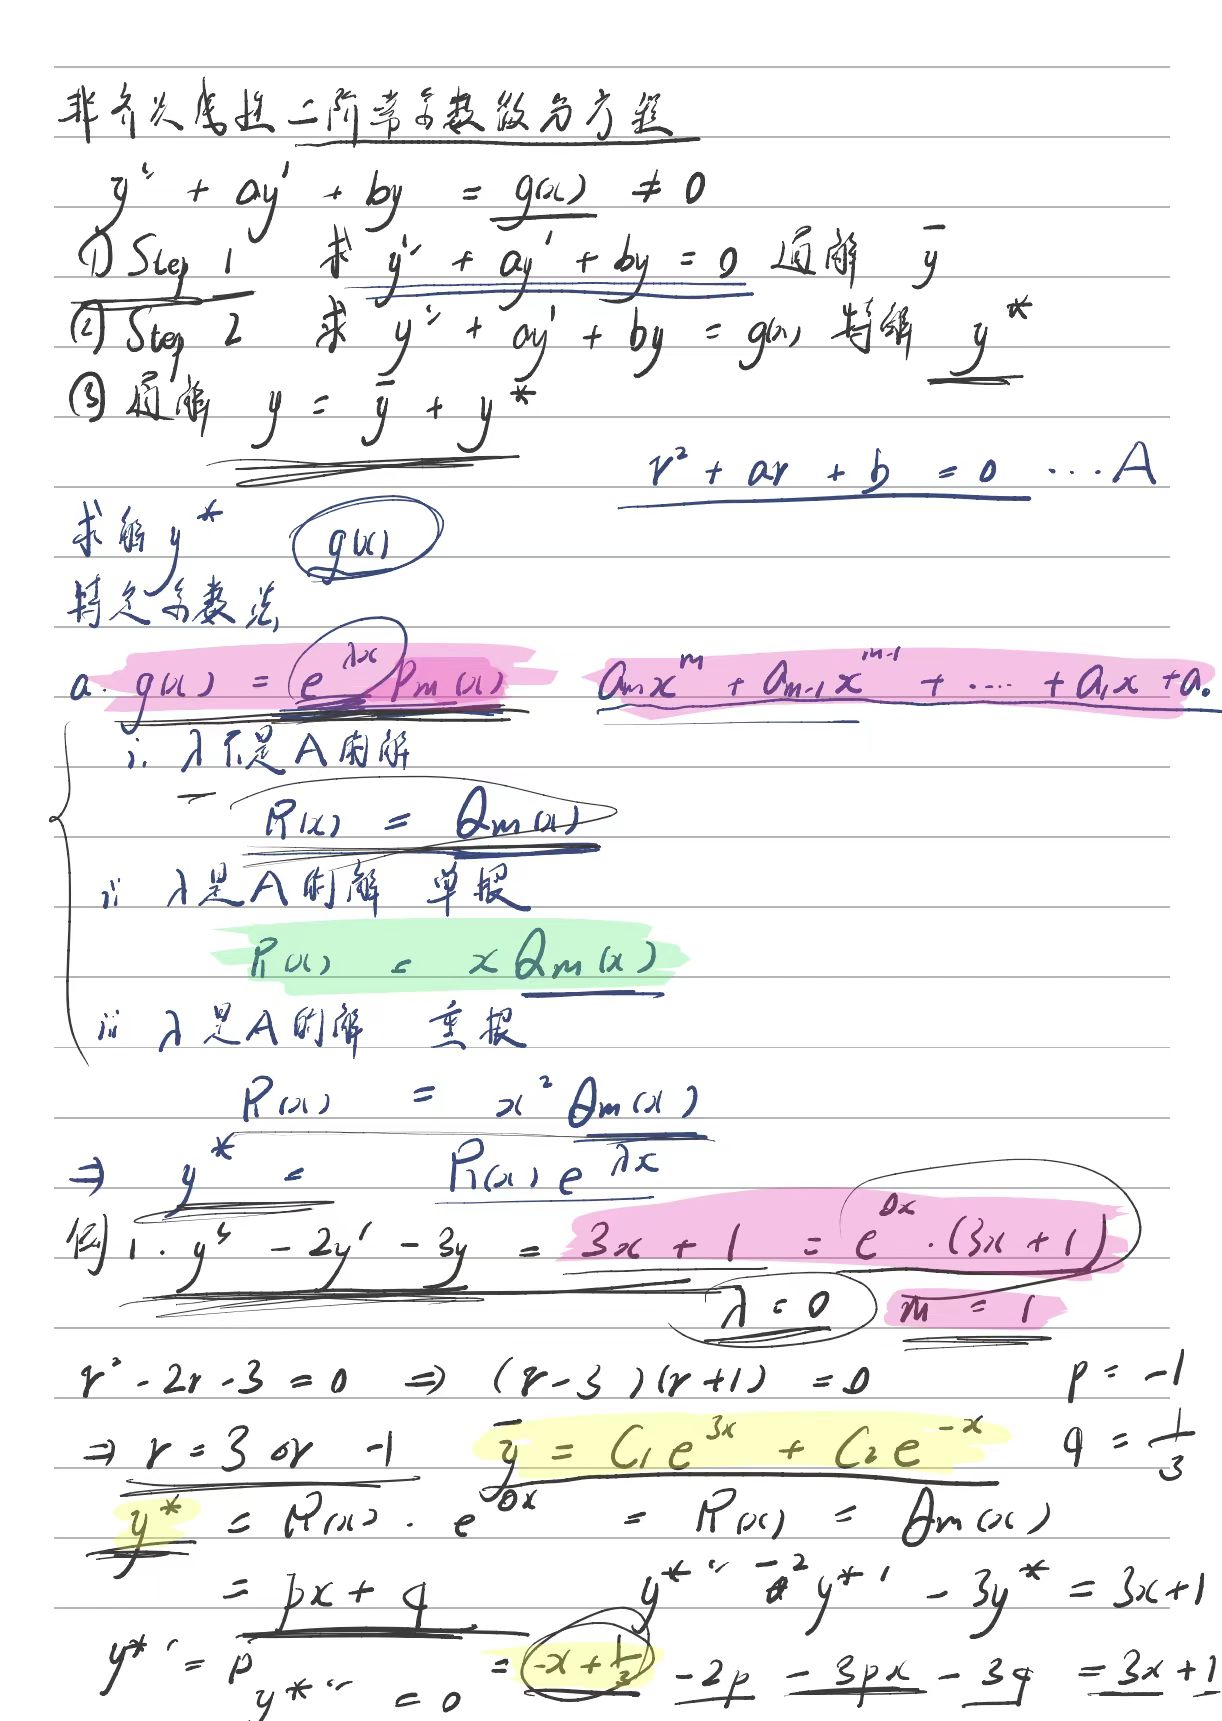 非齐次线性二阶常系数微分方程
y'' + ay' + by = g(x) ≠ 0
① Step 1 求 y'' + ay' + by = 0 通解 ȳ
② Step 2 求 y'' + ay' + by = g(x) 特解 y*
③ 通解 y = ȳ + y*
r² + ar + b = 0 ... A
求解 y* g(x)
特定系数法
a. g(x) = e^λx Pm(x) amx^m + am-1x^m-1 + .... + a1x + a0
i. λ不是A的解
R(x) = Qm(x)
ii λ是A的解 单根
R(x) = x Qm(x)
iii λ是A的解 重根
R(x) = x² Qm(x)
⇒ y* = R(x) e^λx
例1. y'' - 2y' - 3y = 3x + 1 = e^0x · (3x + 1)
λ = 0 m = 1
r² - 2r - 3 = 0 ⇒ (r - 3)(r + 1) = 0 p = -1
⇒ r = 3 or -1 ȳ = C1 e^3x + C2 e^-x q = 1/3
y* = R(x) · e^0x = R(x) = Qm(x)
= px + q y*'' - 2y*' - 3y* = 3x + 1
y*' = p = -x + 1/3 -2p - 3px - 3q = 3x + 1
y*'' = 0